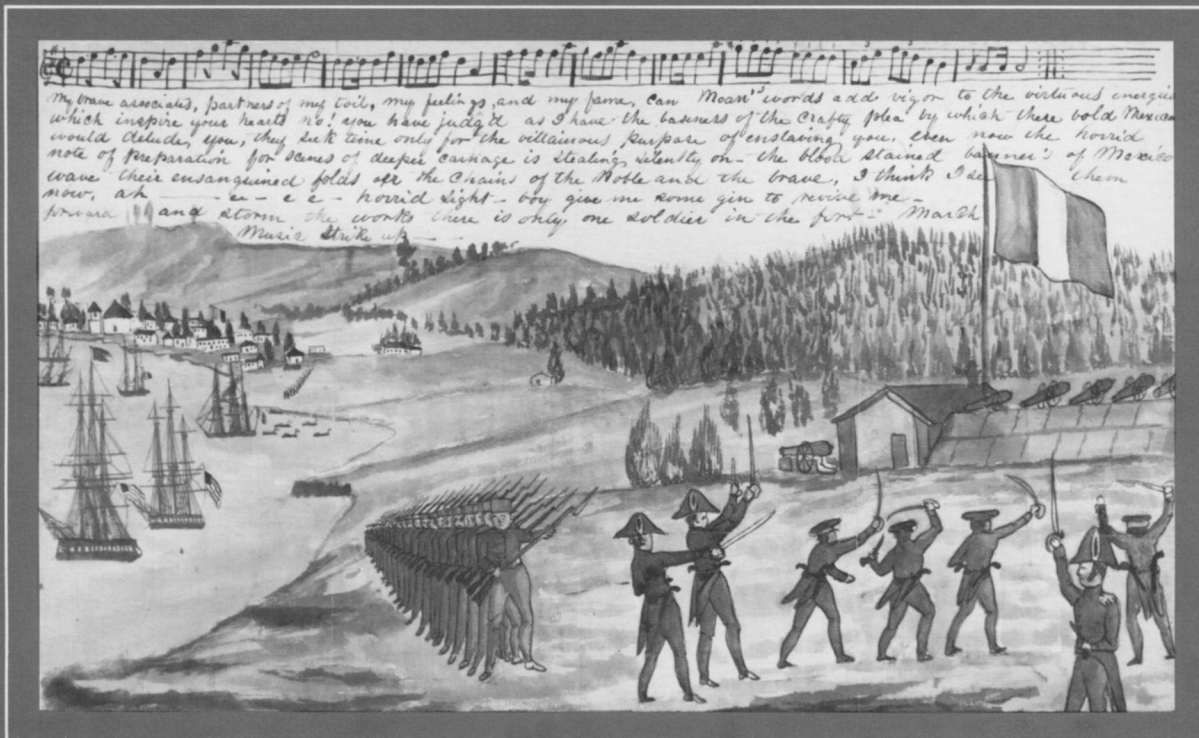 My brave associates, partners of my toil, my feelings, and my fame, can Moan's words add vigor to the virtuous energies
which inspire your hearts no! you have judg'd as I have the baseness of the crafty plea by which these bold Mexican
would delude, you, they seek time only for the villainous purpose of enslaving you. even now the horrid
note of preparation for scenes of deeper carnage is stealing silently on - the blood stained banner's of Mexico
wave their ensanguined folds o'er the chains of the Noble and the brave, I think I see them
now, ah horrid sight - boy give me some gin to revive me -
forward and storm the works there is only one soldier in the fort - March
Music strike up